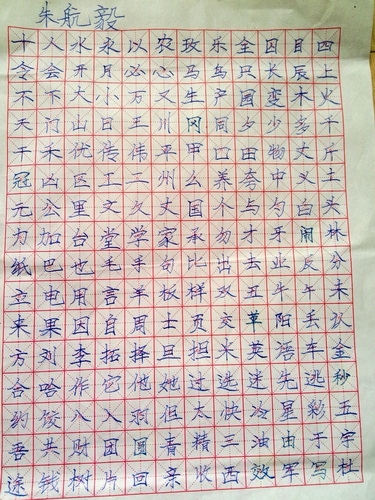 朱航毅
十人水永以农玫乐全囚目四
令会开月必心马鸟只长辰上
不下大小万又生产园变木火
天门山日王川冈同夕少多千
干禾优传伟平甲口田物丈斤
冠凶区工二州么养夸中义土
元公里文欠丈国个与勺白头
力加台堂学家承勿才牙闹林
纸巴也毛手句比出去业反分
立电用言羊板样双丑牛午未
来果因自周士页变草阳丢以
方刘李拓择旦担米英语车金
合哈作它他她过选迷先逃秒
约饺八入弱但太快冷星彩五
垂共财团圆青精三油由于宇
途钱树片回亲收西效军写杜